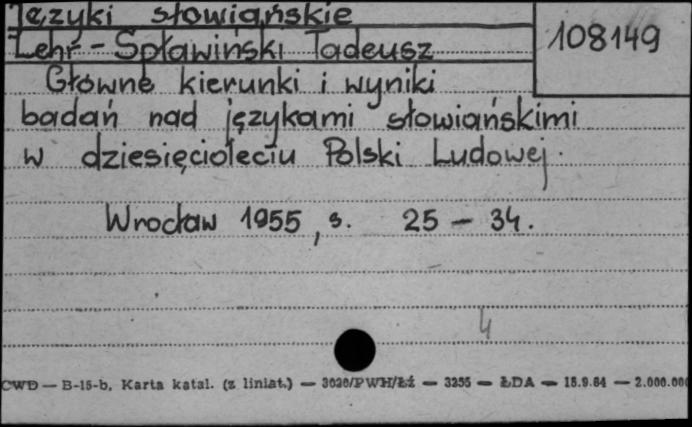 Języki słowiańskie
108149
Lehr-Spławiński Tadeusz
Główne kierunki i wyniki
badań nad językami słowiańskimi
w dziesięcioleciu Polski Ludowej.
Wrocław 1955, s. 25 - 34.
4
CWD — B-15-b, Karta katal. (z liniat.) — 3020/PWH/Łź — 3255 — ŁDA — 15.9.64 — 2.000.000